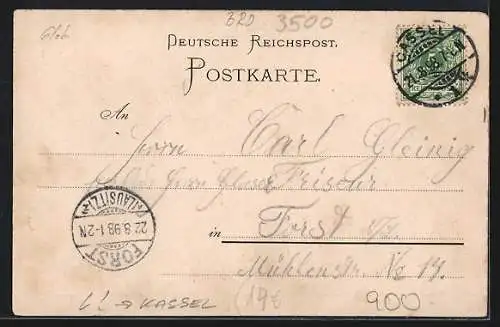 6/06
320
3500
DEUTSCHE REICHSPOST.
POSTKARTE.
CASSEL
21.8.98
1 k
An
Herrn Carl Gleinig
Herrn Friseur
in Forst i/L.
Mühlenstr. No 14.
FORST
(LAUSITZ)
22.8.98.1-2N
L! → KASSEL
19€
900